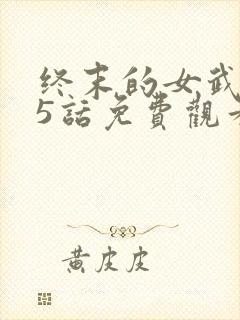 终末的女武
5話免費觀
黄皮皮